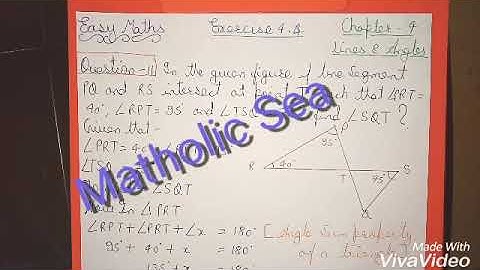 Easy Maths Exercise 4.3 Chapter - 4
Lines & Angles
Question In the given figure if line segment
PQ and RS intersect at point T such that ∠PRT=
40°, ∠RPT = 95° and ∠TSQ find ∠SQT ?
Given that -
∠PRT = 40
∠TSQ
∠SQT
in △PRT
∠RPT + ∠PRT + ∠x = 180° [Angle Sum property
95° + 40° + x = 180° of a
+ x = 180°
P
95°
R 40° T 75° S
Q
Matholic Sea
Made With
VivaVideo